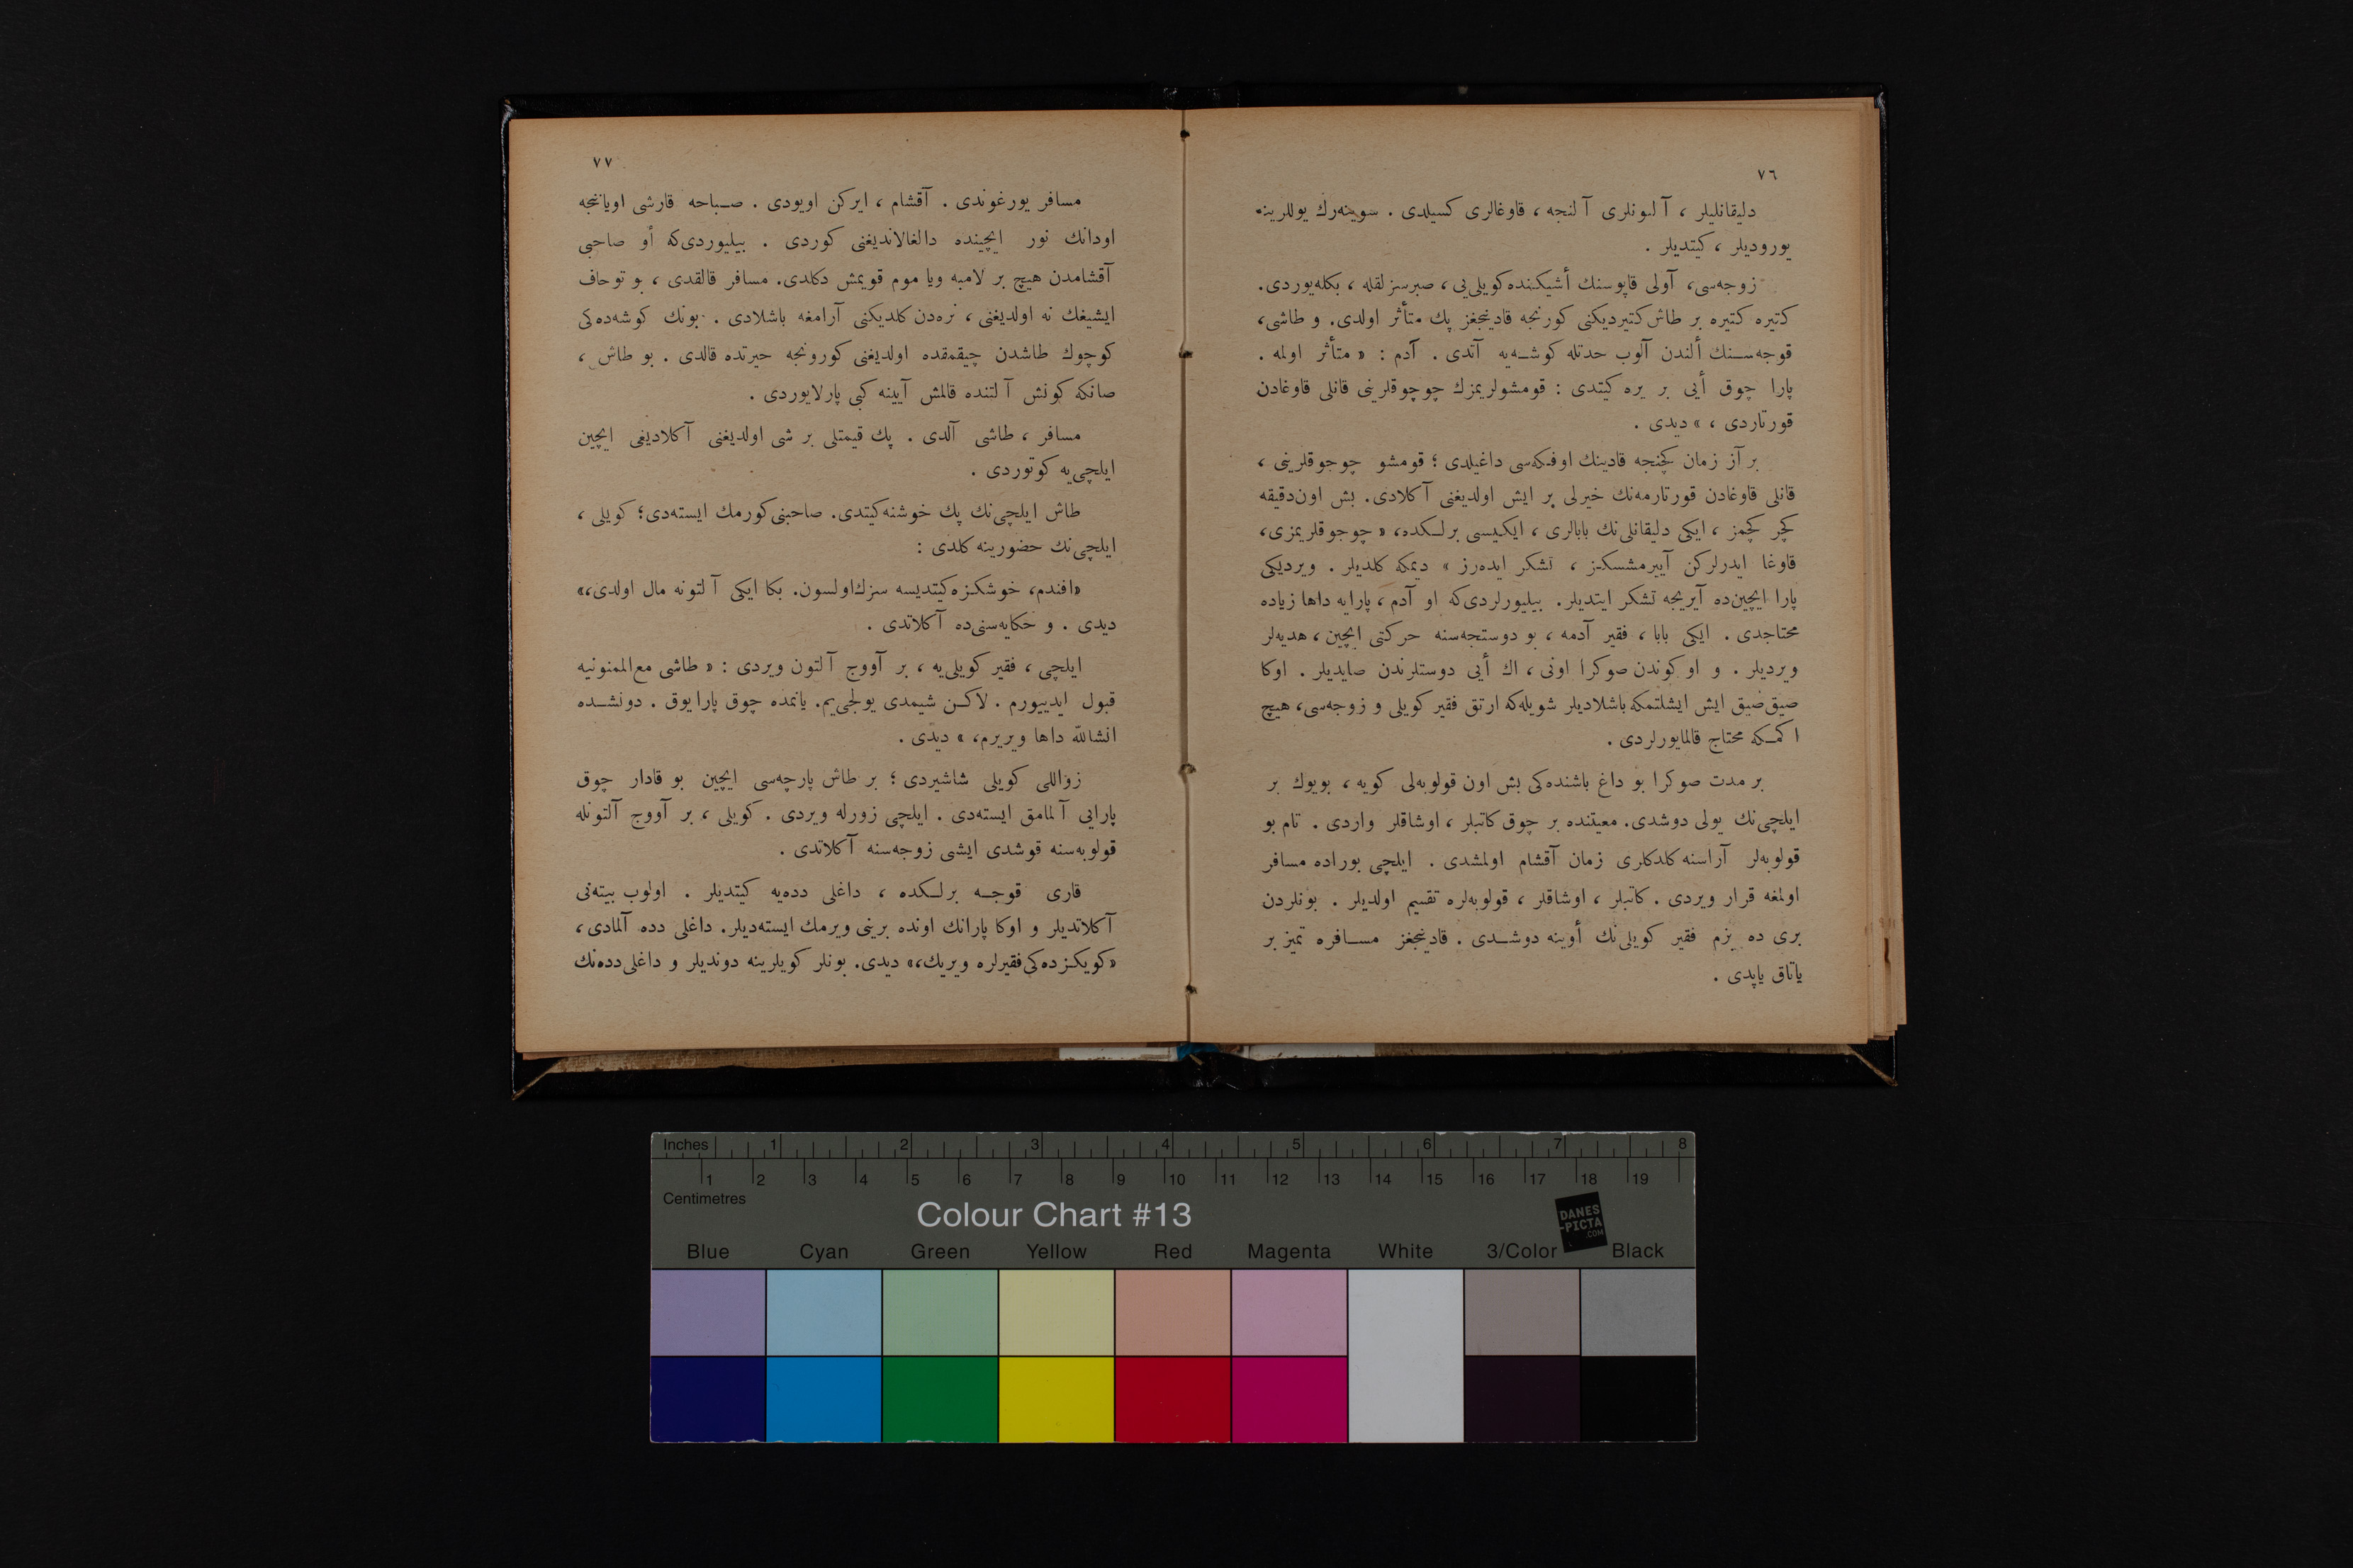 ٧٦
دليقانليلر ، آلتونلرى آلنجه ، قاوغالرى كسيلدى . سوينه‌رك يوللرينه
يوروديلر ، كيتديلر .
زوجه‌سى، آولى قاپوسنك أشيكنده كويلى‌يى ، صبرسزلقله ، بكله‌يوردى.
كتيره كتيره بر طاش كتيرديكنى كورنجه قادينجغز پك متأثر اولدى. و طاشى،
قوجه‌سـنك ألندن آلوب حدتله كوشـه‌يه آتدى . آدم : « متأثر اولمه .
پارا چوق أيى بر يره كيتدى : قومشولريمزك چوجوقلرينى قانلى قاوغادن
قورتاردى ، » ديدى .
بر آز زمان كچنجه قادينك اوفكه‌سى داغيلدى ؛ قومشو چوجوقلرينى ،
قانلى قاوغادن قورتارمه‌نك خيرلى بر ايش اولديغنى آكلادى. بش اون‌دقيقه
كچر كچمز ، ايكى دليقانلى‌نك بابالرى ، ايكيسى برلـكده، « چوجوقلريمزى،
قاوغا ايدرلركن آييرمشسكز ، تشكر ايده‌رز » ديمكه كلديلر . ويرديكى
پارا ايچين‌ده آيريجه تشكر ايتديلر. بيليورلردى‌كه او آدم ، پارايه داها زياده
محتاجدى . ايكى بابا ، فقير آدمه ، بو دوستجه‌سنه حركتى ايچين ، هديه‌لر
ويرديلر . و او كوندن صوكرا اونى ، اك أيى دوستلرندن صايديلر . اوكا
صيق‌صيق ايش ايشلتمكه باشلاديلر شويله‌كه ارتق فقير كويلى و زوجه‌سى، هيچ
اكمـكه محتاج قالمايورلردى .
بر مدت صوكرا بو داغ باشنده‌كى بش اون قولوبه‌لى كويه ، بويوك بر
ايلچى‌نك يولى دوشدى. معيتنده بر چوق كاتبلر ، اوشاقلر واردى . تام بو
قولوبه‌لر آراسنه كلدكلرى زمان آقشام اولمشدى . ايلچى بوراده مسافر
اولمغه قرار ويردى . كاتبلر ، اوشاقلر ، قولوبه‌لره تقسيم اولديلر . بونلردن
برى ده بزم فقير كويلى‌نك أوينه دوشـدى . قادينجغز مسـافره تميز بر
ياتاق ياپدى .
٧٧
مسافر يورغوندى . آقشام ، ايركن اويودى . صـباحه قارشى اويانجه
اودانك نور ايچينده دالغالانديغنى كوردى . بيليوردى‌كه أو صاحبى
آقشامدن هيچ بر لامبه ويا موم قويمش دكلدى. مسافر قالقدى ، بو توحاف
ايشيغك نه اولديغنى ، نره‌دن كلديكنى آرامغه باشلادى . بونك كوشه‌ده‌كى
كوچوك طاشدن چيقمقده اولديغنى كورونجه حيرتده قالدى . بو طاش ،
صانكه كونش آلتنده قالمش آيينه كبى پارلايوردى .
مسافر ، طاشى آلدى . پك قيمتلى بر شى اولديغنى آكلاديغى ايچين
ايلچى‌يه كوتوردى .
طاش ايلچى‌نك پك خوشنه‌كيتدى. صاحبنى‌كورمك ايسته‌دى؛ كويلى ،
ايلچى‌نك حضورينه كلدى :
«افندم، خوشكزه‌كيتديسه سزك‌اولسون. بكا ايكى آلتونه مال اولدى،»
ديدى . و حكايه‌سنى‌ده آكلاتدى .
ايلچى ، فقير كويلى‌يه ، بر آووج آلتون ويردى : « طاشى مع‌الممنونيه
قبول ايدييورم . لاكـن شيمدى يولجى‌يم. يانمده چوق پارا يوق . دونشـده
انشالله داها ويريرم، » ديدى .
زواللى كويلى شاشيردى ؛ بر طاش پارچه‌سى ايچين بو قادار چوق
پارايى آلمامق ايسته‌دى . ايلچى زورله ويردى . كويلى ، بر آووج آلتونله
قولوبه‌سنه قوشدى ايشى زوجه‌سنه آكلاتدى .
قارى قوجـه برلـكده ، داغلى دده‌يه كيتديلر . اولوب بيته‌نى
آكلاتديلر و اوكا پارانك اونده برينى ويرمك ايسته‌ديلر. داغلى دده آلمادى،
«كويكزده‌كى‌فقيرلره ويريك،» ديدى. بونلر كويلرينه دونديلر و داغلى‌دده‌نك
Inches 1 2 3 4 5 6 7 8
1 2 3 4 5 6 7 8 9 10 11 12 13 14 15 16 17 18 19
Centimetres
Colour Chart #13
DANES
-PICTA
.COM
Blue Cyan Green Yellow Red Magenta White 3/Color Black